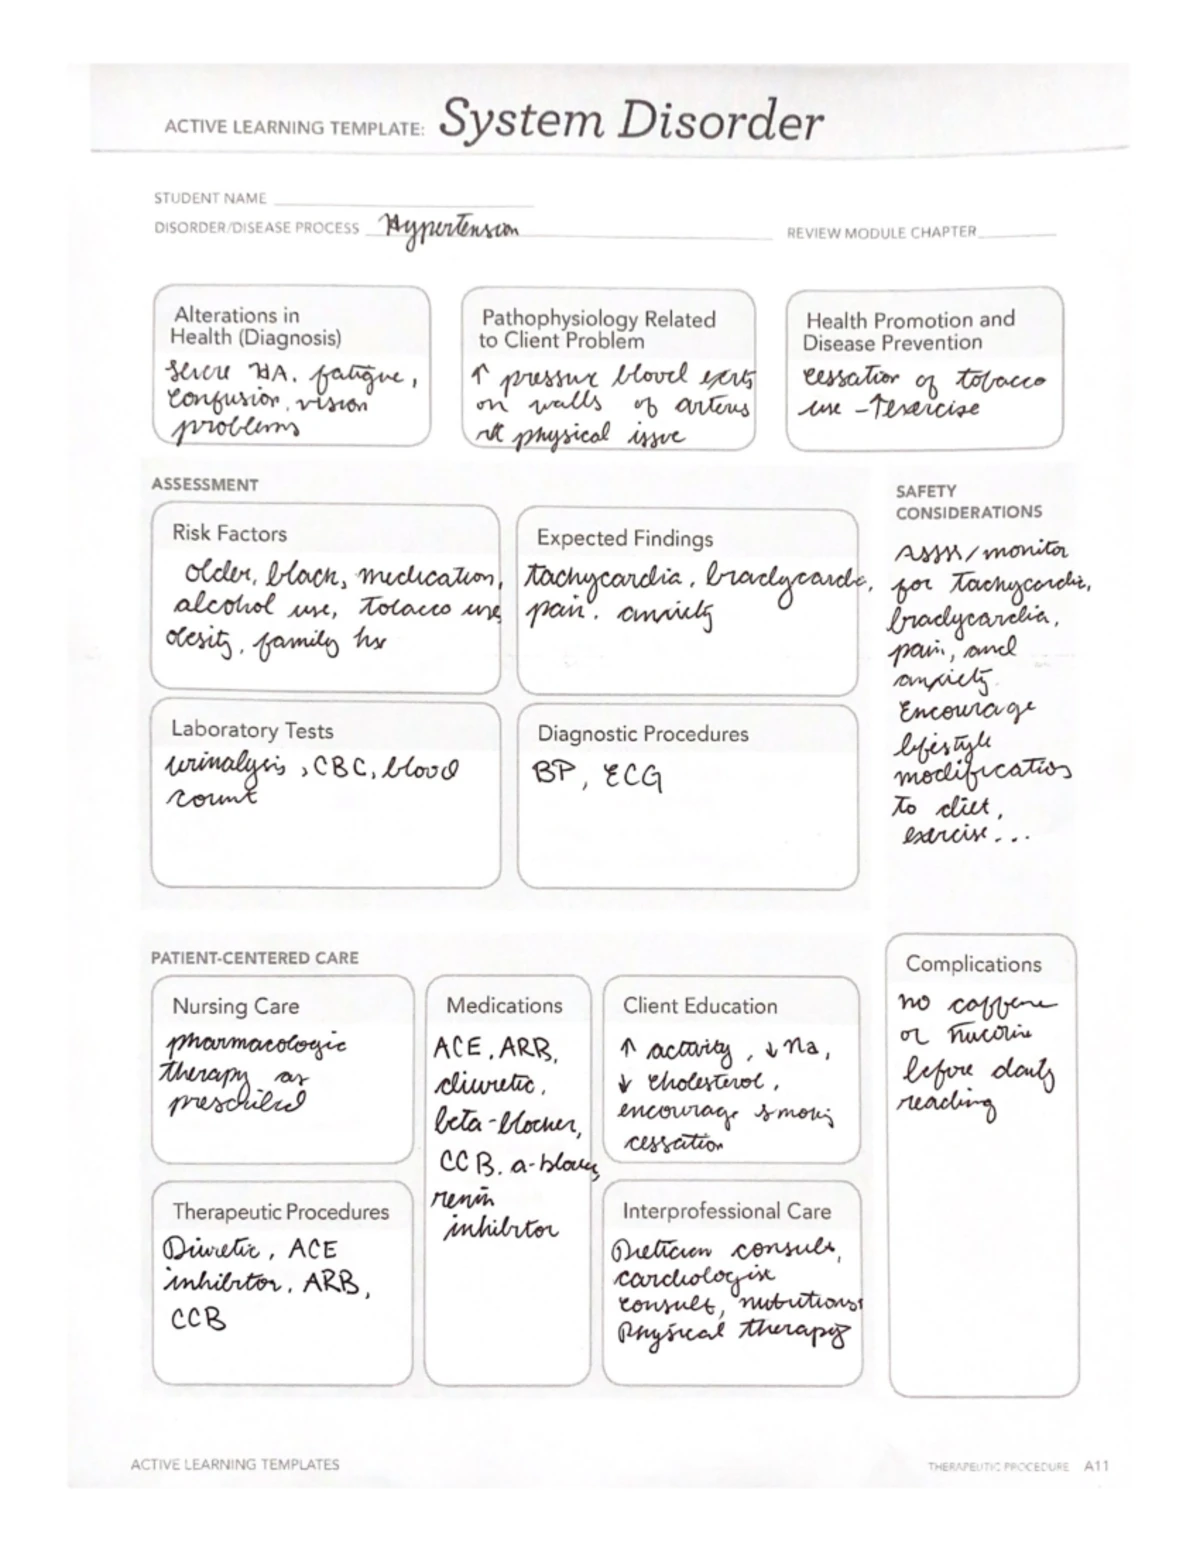 ACTIVE LEARNING TEMPLATE: System Disorder
STUDENT NAME
DISORDER/DISEASE PROCESS Hypertension
REVIEW MODULE CHAPTER
Alterations in
Health (Diagnosis)
severe HA, fatigue,
confusion, vision
problems
Pathophysiology Related
to Client Problem
↑ pressure blood exerts
on walls of arteries
r/t physical issue
Health Promotion and
Disease Prevention
cessation of tobacco
use - ↑ exercise
ASSESSMENT
Risk Factors
older, black, medication,
alcohol use, tobacco use
obesity, family hx
Expected Findings
tachycardia, bradycardia,
pain, anxiety
Laboratory Tests
urinalysis, CBC, blood
count
Diagnostic Procedures
BP, ECG
SAFETY
CONSIDERATIONS
Assess/monitor
for tachycardia,
bradycardia,
pain, and
anxiety.
Encourage
lifestyle
modification
to diet,
exercise...
PATIENT-CENTERED CARE
Nursing Care
pharmacologic
therapy as
prescribed
Medications
ACE, ARB,
diuretic,
beta-blocker,
CCB, a-block,
renin
inhibitor
Client Education
↑ activity, ↓ Na,
↓ cholesterol,
encourage smoking
cessation
Therapeutic Procedures
Diuretic, ACE
inhibitor, ARB,
CCB
Interprofessional Care
Dietician consult,
cardiologist
consult, nutritionist
Physical therapy
Complications
no caffeine
or nicotine
before daily
reading
ACTIVE LEARNING TEMPLATES
THERAPEUTIC PROCEDURE A11